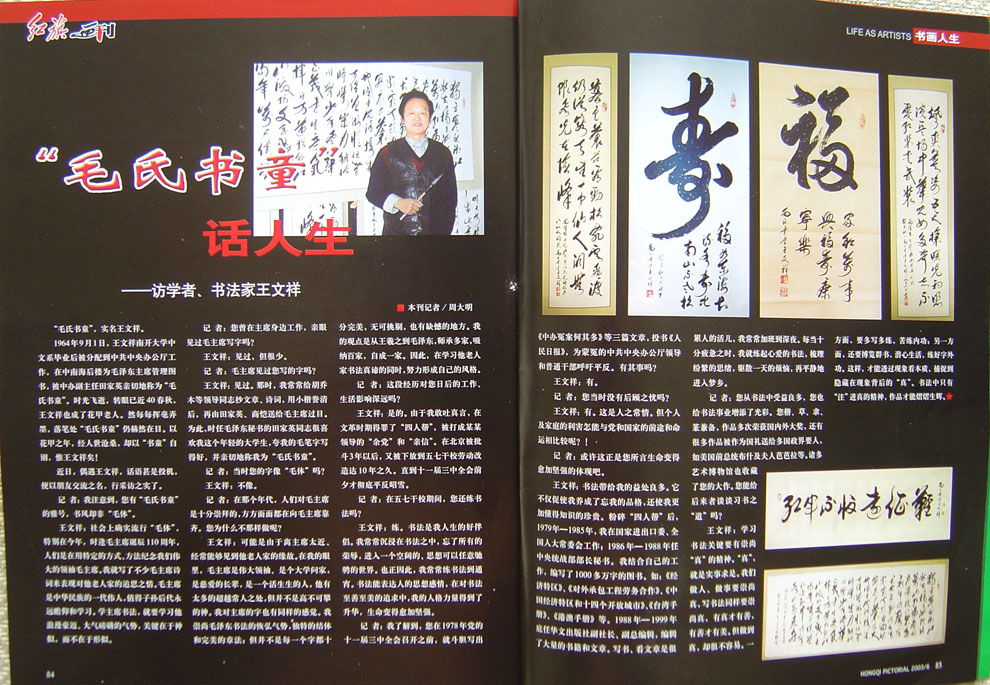 红旗画刊
“毛氏书童”
话人生
——访学者、书法家王文祥
■ 本刊记者／周大明
“毛氏书童”，实名王文祥。
1964年9月1日，王文祥南开大学中
文系毕业后被分配到中共中央办公厅工
作，在中南海后楼为毛泽东主席管理图
书，被中办副主任田家英亲切地称为“毛
氏书童”。时光飞逝，转眼已近40春秋，
王文祥也成了花甲老人。然每每挥毫弄
墨，落笔处“毛氏书童”仍赫然在目。以
花甲之年，经人世沧桑，却以“书童”自
诩，惟王文祥矣！
近日，偶遇王文祥，话语甚是投机，
便以朋友交流之名，行采访之实了。
记 者：我注意到，您有“毛氏书童”
的雅号，书风却非“毛体”。
王文祥：社会上确实流行“毛体”，
特别在今年，时逢毛主席诞辰110周年，
人们是在用特定的方式、方法纪念我们伟
大的领袖毛主席。我就写了不少毛主席诗
词来表现对他老人家的追思之情。毛主席
是中华民族的一代伟人，值得子孙后代永
远瞻仰和学习。学主席书法，就要学习他
浪漫豪迈、大气磅礴的气势，关键在于神
似，而不在于形似。
记 者：您曾在主席身边工作，亲眼
见过毛主席写字吗？
王文祥：见过，但很少。
记 者：毛主席见过您写的字吗？
王文祥：见过。那时，我常常给胡乔
木等领导同志抄文章、诗词，用小楷誊清
后，再由田家英、商恺送给毛主席过目。
为此，时任毛泽东秘书的田家英同志很喜
欢我这个年轻的大学生，夸我的毛笔字写
得好，并亲切地称我为“毛氏书童”。
记 者：当时您的字像“毛体”吗？
王文祥：不像。
记 者：在那个年代，人们对毛主席
是十分崇拜的，方方面面都在向毛主席靠
齐。您为什么不那样做呢？
王文祥：可能是由于离主席太近，
经常能够见到他老人家的缘故。在我的眼
里，毛主席是伟大领袖，是个大学问家，
是慈爱的长辈，是一个活生生的人，他有
太多的超越常人之处，但并不是高不可攀
的神。我对主席的字也有同样的感觉。我
崇尚毛泽东书法的恢弘气势，独特的结体
和完美的章法；但并不是每一个字都十
分完美，无可挑剔，也有缺憾的地方。我
的观点是从王羲之到毛泽东，师承多家，吸
纳百家，自成一家。因此，在学习他老人
家书法真谛的同时，努力形成自己的风格。
记 者：这段经历对您日后的工作、
生活影响深远吗？
王文祥：是的。由于我敢吐真言，在
文革时期得罪了“四人帮”，被打成某某
领导的“余党”和“亲信”。在北京被批
斗3年以后，又被下放到五七干校劳动改
造达10年之久。直到十一届三中全会前
夕才彻底平反昭雪。
记 者：在五七干校期间，您还练书
法吗？
王文祥：练。书法是我人生的好伴
侣，我常常沉浸在书法之中，忘了所有的
荣辱，进入一个空阔的、思想可以任意驰
骋的世界。也正因此，我常常练书法到通
宵。书法能表达人的思想感情，在对书法
至善至美的追求中，我的人格力量得到了
升华，生命变得愈加坚强。
记 者：我了解到，您在1978年党的
十一届三中全会召开之前，就斗胆写出
84
LIFE AS ARTISTS 书画人生
寿
福
《中办冤案何其多》等三篇文章，投书《人
民日报》，为蒙冤的中共中央办公厅领导
和普通干部呼吁平反。有其事吗？
王文祥：有。
记 者：您当时没有后顾之忧吗？
王文祥：有。这是人之常情。但个人
及家庭的利害怎能与党和国家的前途和命
运相比较呢？！
记 者：或许这正是您所言生命变得
愈加坚强的体现吧。
王文祥：书法带给我的益处良多。它
不仅促使我养成了忘我的品格，还使我更
加懂得知识的珍贵。粉碎“四人帮”后，
1979年—1985年，我在国家进出口委、全
国人大常委会工作；1986年—1988年任
中央统战部部长秘书。我结合自己的工
作，编写了1000多万字的图书，如：《经
济特区》、《对外承包工程劳务合作》、《中
国经济特区和十四个开放城市》、《台湾手
册》、《港澳手册》等。1988年—1999年
底任华文出版社副社长、副总编辑，编辑
了大量的书籍和文章。写书、看文章是很
累人的活儿，我常常加班到深夜。每当十
分疲惫之时，我就练起心爱的书法，梳理
纷繁的思绪，驱散一天的烦恼，再平静地
进入梦乡。
记 者：您从书法中受益良多，您也
给书法事业增添了光彩。您楷、草、隶、
篆兼备，作品多次荣获国内外大奖，还有
很多作品被作为国礼送给多国政界要人，
如美国前总统布什及夫人芭芭拉等。诸多
艺术博物馆也收藏
了您的大作。您能给
后来者谈谈习书之
“道”吗？
王文祥：学习
书法关键要有崇尚
“真”的精神。“真”，
就是实事求是。我们
做人、做事要崇尚
真，写书法同样要崇
尚真，有真才有善，
有善才有美。但做到
真，却很不容易。一
方面，要多写多练，苦练内功；另一方
面，还要博览群书，潜心生活，练好字外
功。这样，才能透过现象看本质，捕捉到
隐藏在现象背后的“真”。书法中只有
“注”进真的精神，作品才能熠熠生辉。★
HONGQI PICTORIAL 2003/6 85